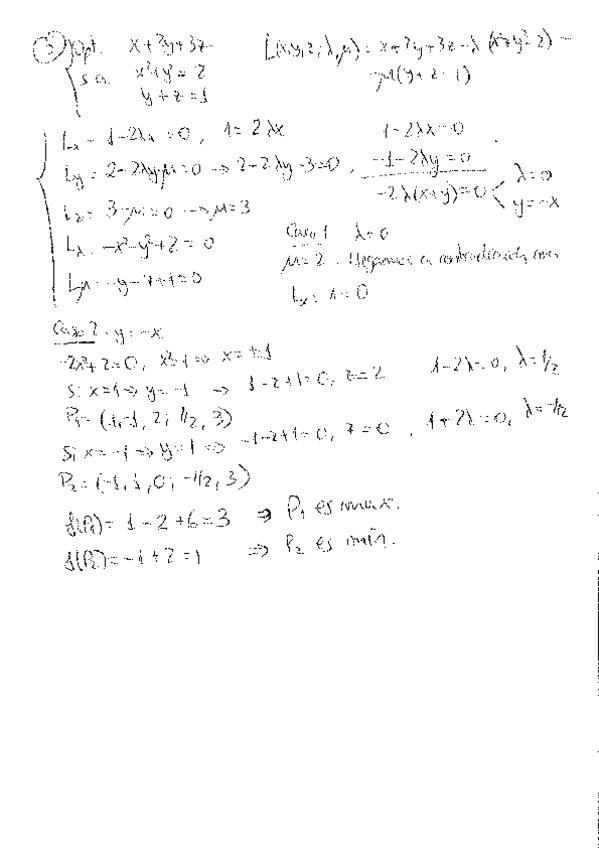 ③ Opt. x+2y+3z   L(x,y,z;λ,μ) = x+2y+3z-λ(x²+y²-2) -
s.a. x²+y² = 2   -μ(y+z-1)
y+z=1
Lx = 1-2λx = 0, 1=2λx   1-2λx=0
Ly = 2-2λy-μ=0 → 2-2λy-3=0,   -1-2λy=0
-2λ(x+y)=0   λ=0   y=-x
Lz = 3-μ=0 → μ=3
Lλ = -x²-y²+2 = 0   Caso 1 λ=0
Lμ = -y-z+1=0   μ=2. Llegamos a contradicción con
Lx: 1=0
Caso 2. y=-x
-2x²+2=0, x²=1 ⇒ x=±1
Si x=1 ⇒ y=-1 ⇒ 1-z+1=0, z=2   1-2λ=0, λ=1/2
P₁=(1,-1,2; 1/2, 3)
Si x=-1 ⇒ y=1 ⇒ -1-z+1=0, z=0, 1+2λ=0, λ=-1/2
P₂=(-1,1,0; -1/2, 3)
f(P₁)= 1-2+6=5 ⇒ P₁ es max.
f(P₂)=-1+2=1 ⇒ P₂ es mín.